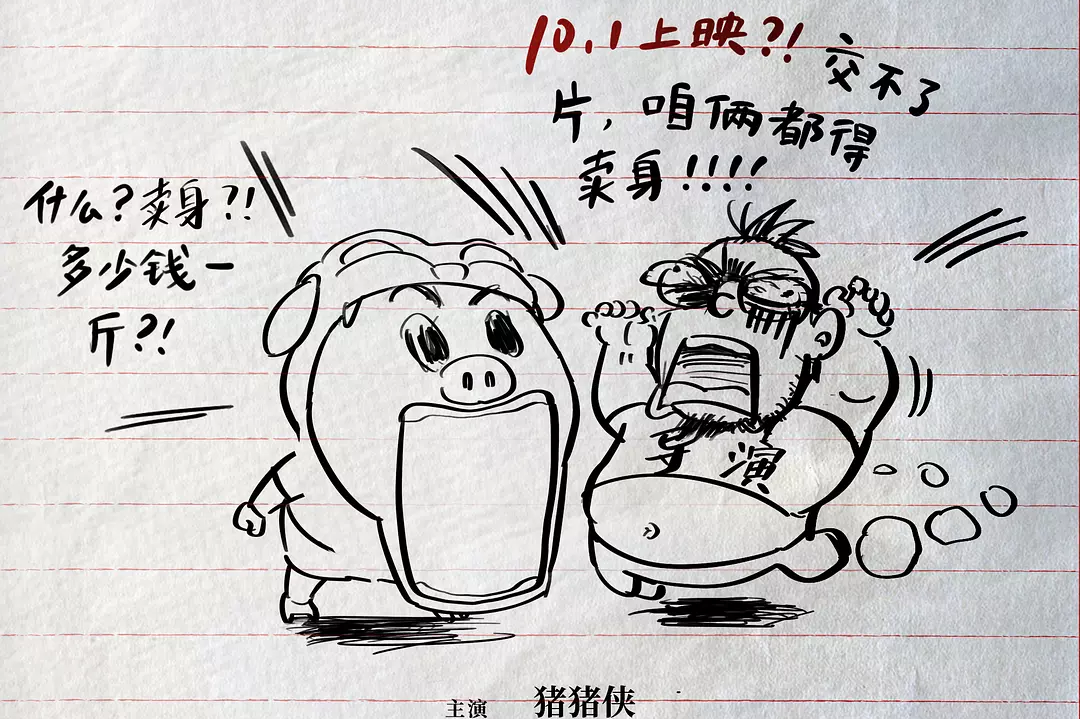 10.1上映?!交不了
片,咱俩都得
卖身!!!!
什么?卖身?!
多少钱一
斤?!
导演
主演 猪猪侠